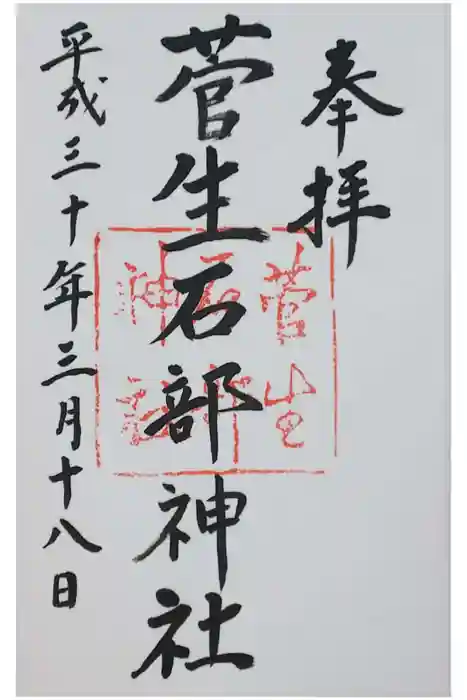 奉拝
菅生石部神社
平成三十年三月十八日
菅生
石部
神社